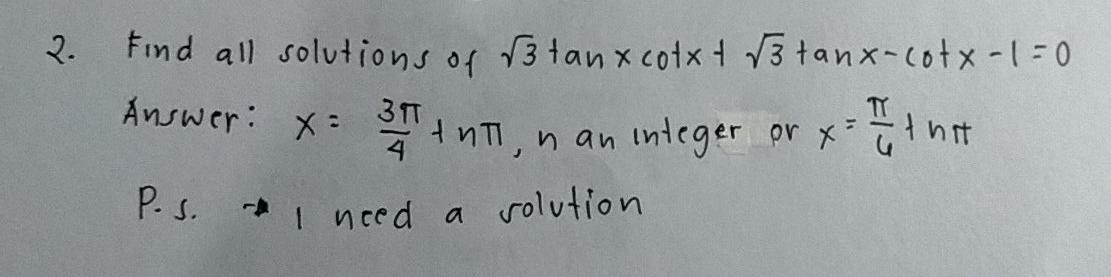 2. Find all solutions of √3 tan x cot x + √3 tan x - cot x - 1 = 0
Answer: x = 3π/4 + nπ, n an integer or x = π/6 + nπ
P.S. → I need a solution